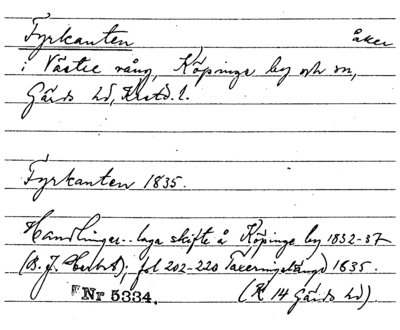 Fyrkanten åker
i Västre vång, Köpinge by och sn,
Gärds hd, Krstds l.
Fyrkanten 1835.
Handlingar.. laga skifte å Köpinge by 1832-37
(B. J. ); fol 202-220 Taxeringslängd 1835.
Nr 5334. (K 14 Gärds hd).